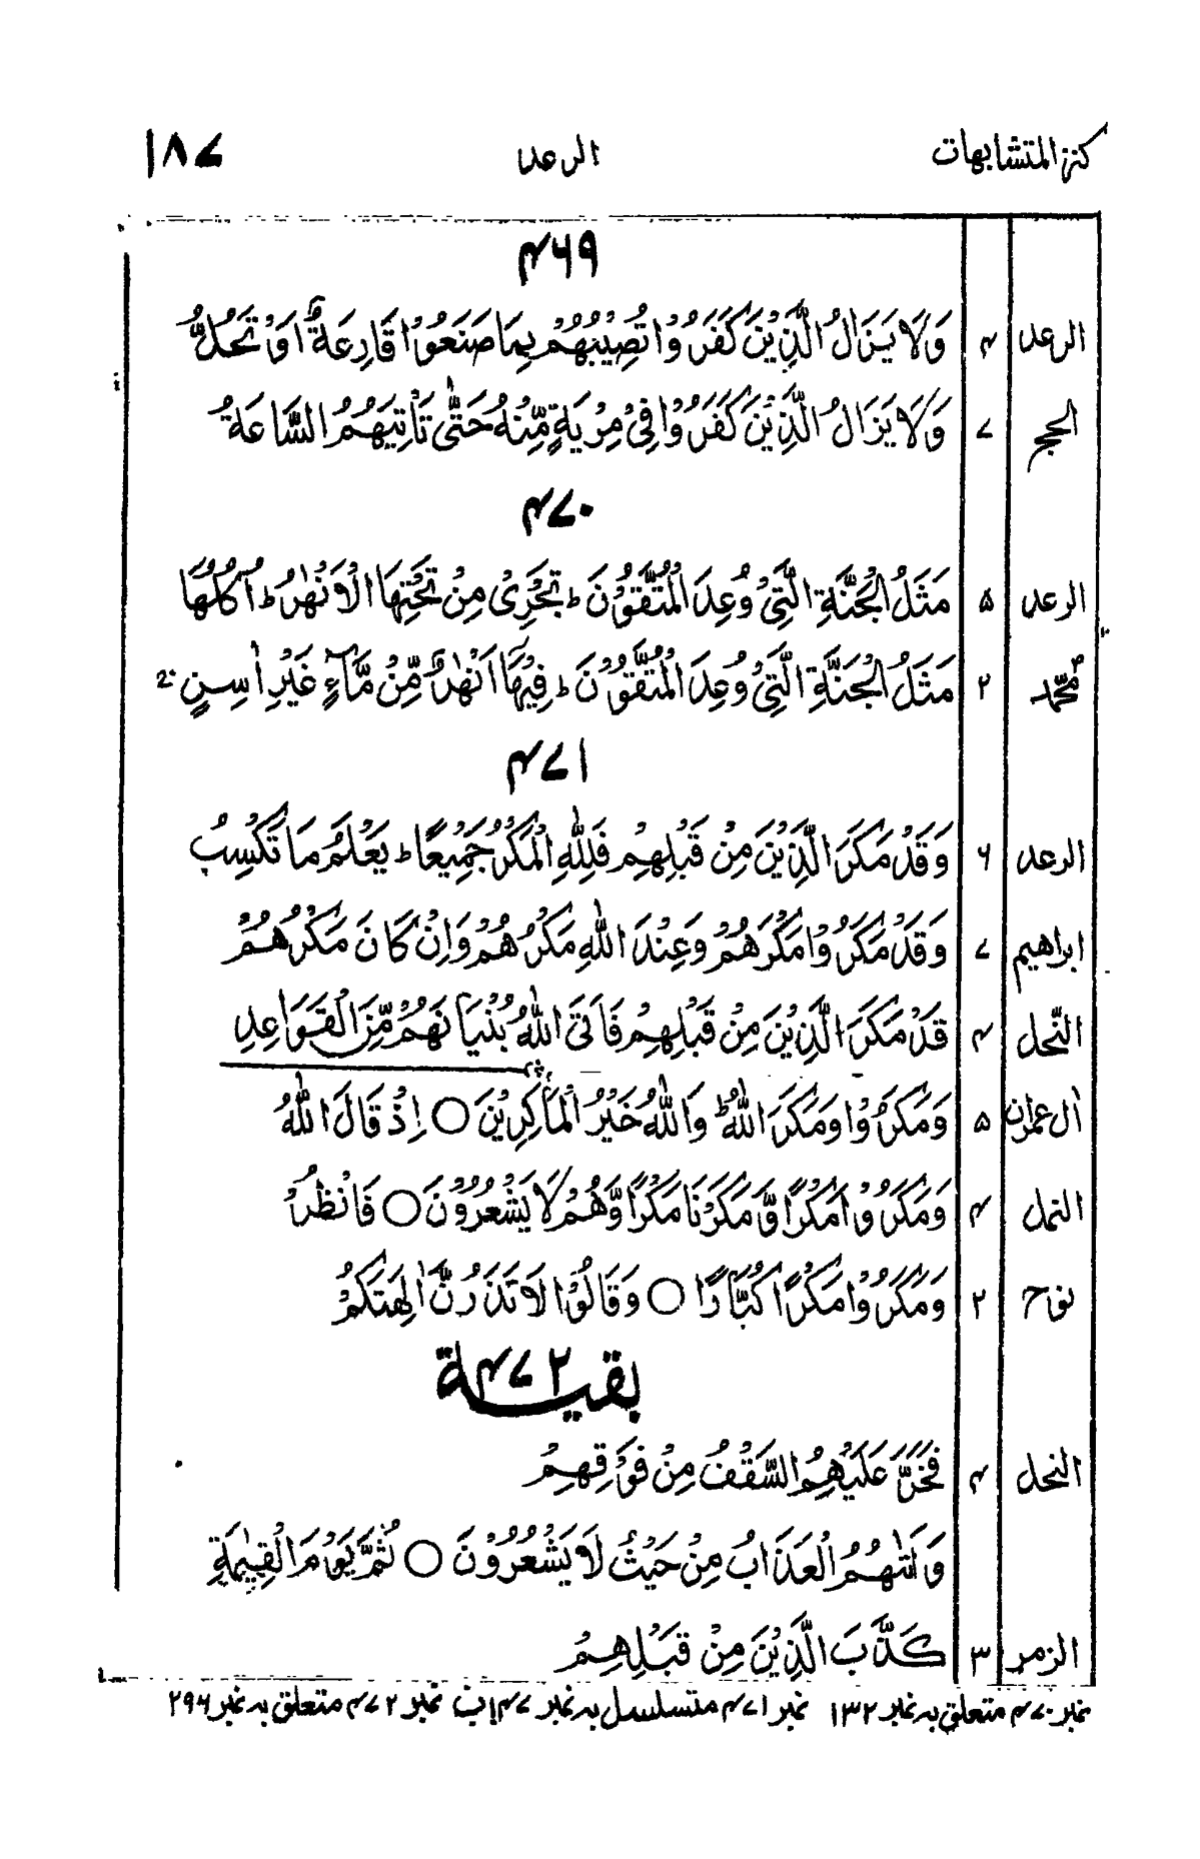 كنز المتشابهات الرعد ۱۸۷
۴۶۹
الرعد ۴ وَلَا يَزَالُ الَّذِيْنَ كَفَرُوْا تُصِيْبُهُمْ بِمَا صَنَعُوْا قَارِعَةٌ اَوْ تَحُلُّ
الحج ۷ وَلَا يَزَالُ الَّذِيْنَ كَفَرُوْا فِيْ مِرْيَةٍ مِّنْهُ حَتّٰى تَاْتِيَهُمُ السَّاعَةُ
۴۷۰
الرعد ۵ مَثَلُ الْجَنَّةِ الَّتِيْ وُعِدَ الْمُتَّقُوْنَ ؕ تَجْرِيْ مِنْ تَحْتِهَا الْاَنْهٰرُ ؕ اُكُلُهَا
محمّد ۲ مَثَلُ الْجَنَّةِ الَّتِيْ وُعِدَ الْمُتَّقُوْنَ ؕ فِيْهَا اَنْهٰرٌ مِّنْ مَّآءٍ غَيْرِ اٰسِنٍ
۴۷۱
الرعد ۶ وَقَدْ مَكَرَ الَّذِيْنَ مِنْ قَبْلِهِمْ فَلِلّٰهِ الْمَكْرُ جَمِيْعًا ؕ يَعْلَمُ مَا تَكْسِبُ
ابراهيم ۷ وَقَدْ مَكَرُوْا مَكْرَهُمْ وَعِنْدَ اللّٰهِ مَكْرُهُمْ وَاِنْ كَانَ مَكْرُهُمْ
النّحل ۴ قَدْ مَكَرَ الَّذِيْنَ مِنْ قَبْلِهِمْ فَاَتَى اللّٰهُ بُنْيَانَهُمْ مِّنَ الْقَوَاعِدِ
اٰل عمرٰن ۵ وَمَكَرُوْا وَمَكَرَ اللّٰهُ ؕ وَاللّٰهُ خَيْرُ الْمَاكِرِيْنَ ○ اِذْ قَالَ اللّٰهُ
النمل ۴ وَمَكَرُوْا مَكْرًا وَّمَكَرْنَا مَكْرًا وَّهُمْ لَا يَشْعُرُوْنَ ○ فَانْظُرْ
نوح ۲ وَمَكَرُوْا مَكْرًا كُبَّارًا ○ وَقَالُوْا لَا تَذَرُنَّ اٰلِهَتَكُمْ
بقية ۴۷۲
النحل ۴ فَخَرَّ عَلَيْهِمُ السَّقْفُ مِنْ فَوْقِهِمْ
وَاَتٰىهُمُ الْعَذَابُ مِنْ حَيْثُ لَا يَشْعُرُوْنَ ○ ثُمَّ يَوْمَ الْقِيٰمَةِ
الزمر ۳ كَذَّبَ الَّذِيْنَ مِنْ قَبْلِهِمْ
نمبر ۴۷۰ متعلق بہ نمبر ۱۳۲ نمبر ۴۷۱ متسلسل بہ نمبر نمبر ۴۷۲ متعلق بہ نمبر ۲۹۶